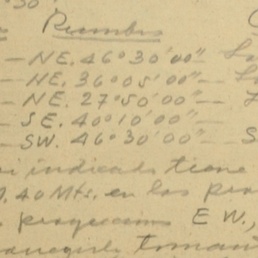 30'
Rumbos
— NE. 46° 30' 00" —
— NE. 36° 05' 00" —
— NE. 27° 50' 00" —
— SE. 40° 10' 00" —
— SW. 46° 30' 00" — S
indicado tiene
40 Mts. en los
proyeccion E W.,